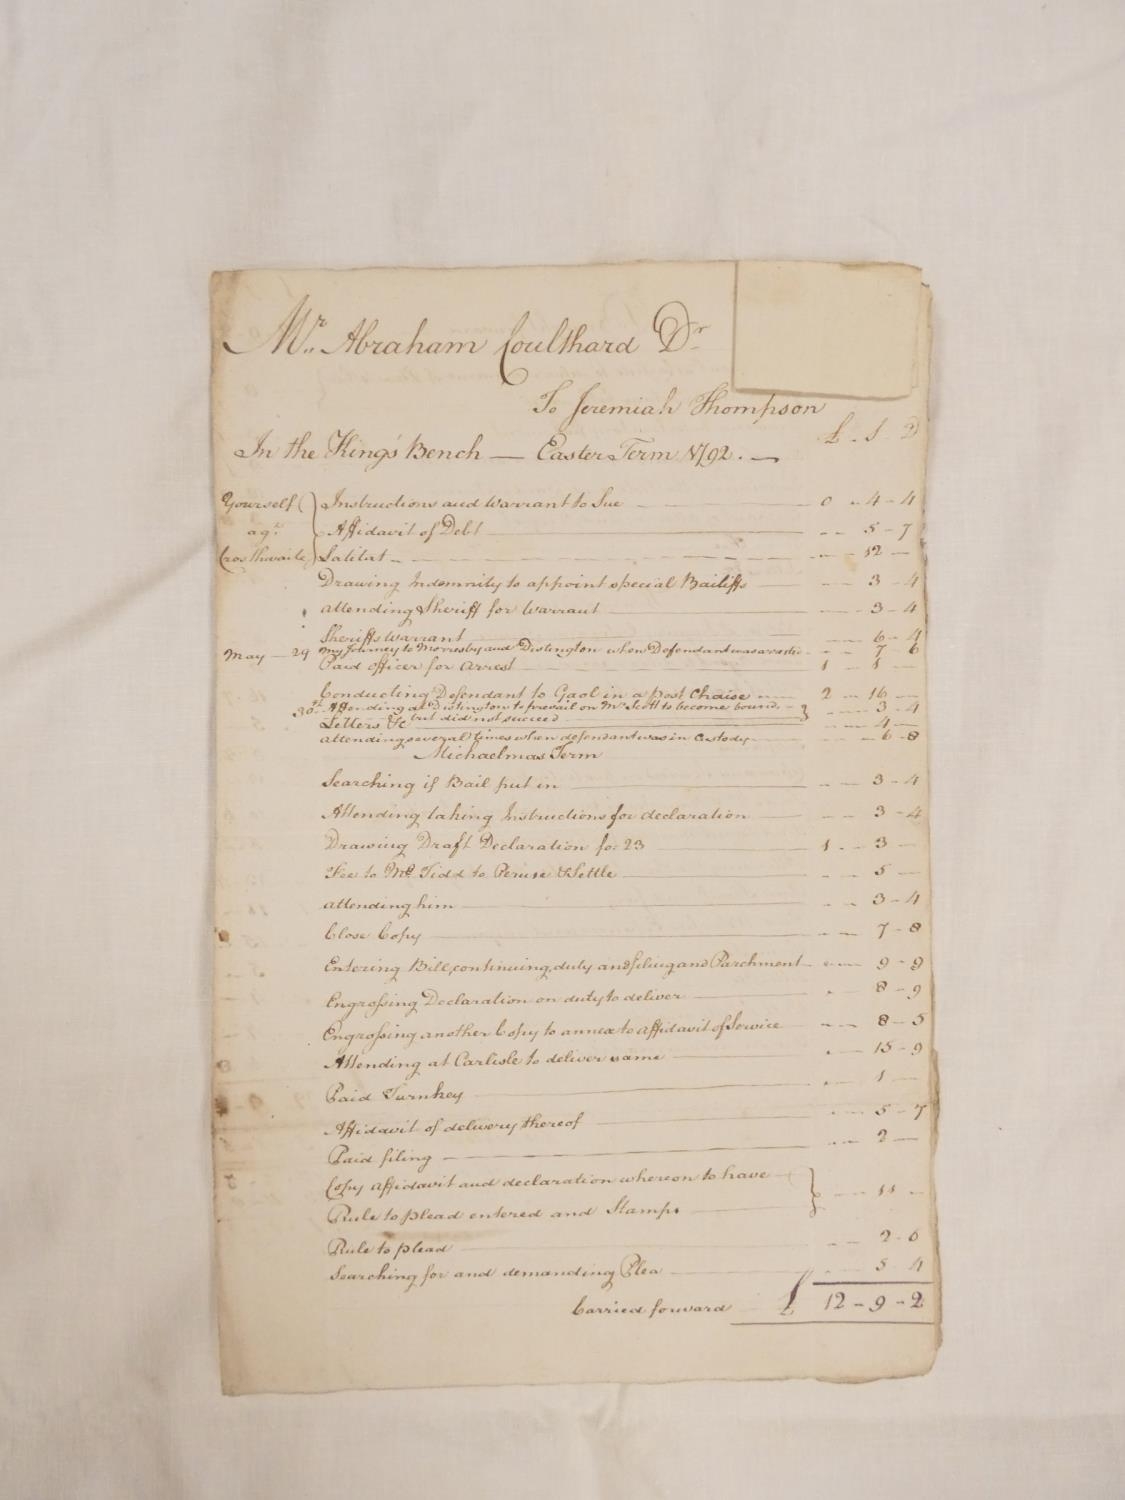 Mr. Abraham Coulthard Dr
To Jeremiah Thompson
£ - S - D
In the King's Bench — Easter Term 1792. —
Yourself Instructions and Warrant to Sue 0 - 4 - 4
agt Affidavit of Debt 5 - 7
Crosthwaite Latitat 12 —
Drawing Indemnity to appoint special Bailiffs 3 - 4
attending Sheriff for Warrant 3 - 4
Sheriffs Warrant 6 - 4
May — 29 My Journey to Morresby and Distington when Defendant was arrested 7 - 6
Paid officer for arrest 1 - 1 —
Conducting Defendant to Gaol in a post Chaise 2 - 16 —
30th Attending at Distington to prevail on Mr Scott to become bound 3 - 4
but did not succeed
Letters &c 4 —
attending several times when defendant was in Custody 6 - 8
Michaelmas Term
Searching if Bail put in 3 - 4
Attending taking Instructions for declaration 3 - 4
Drawing Draft Declaration fo: 23 1 - 3 —
Fee to Mr Tidd to Peruse & Settle 5 —
attending him 3 - 4
Close Copy 7 - 8
Entering Bill, continuing, duty and filing and Parchment 9 - 9
Engrossing Declaration on duty to deliver 8 - 9
Engrossing another Copy to annex to affidavit of Service 8 - 5
Attending at Carlisle to deliver same 15 - 9
Paid Turnkey 1 —
Affidavit of delivery thereof 5 - 7
Paid filing 2 —
Copy affidavit and declaration whereon to have
Rule to plead entered and Stamps 11 —
Rule to plead 2 - 6
Searching for and demanding Plea 5 4
Carried forward £ 12 - 9 - 2